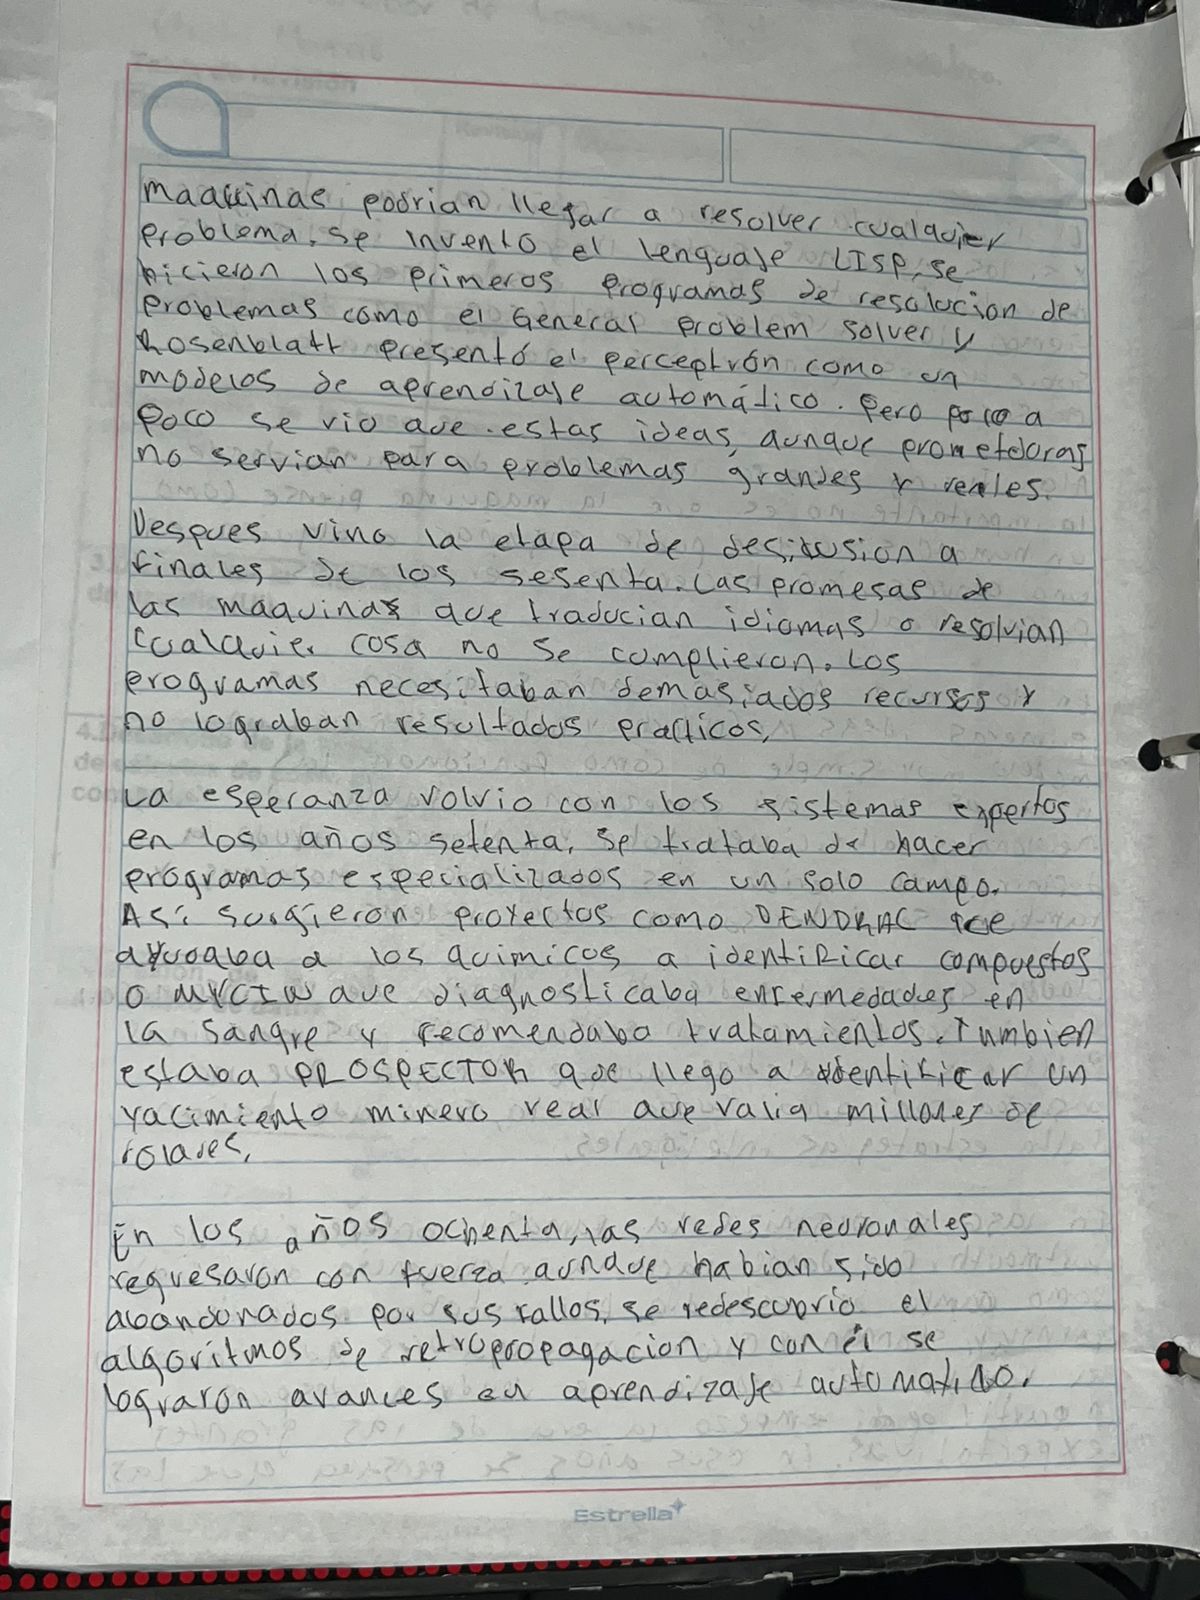 maquinas podrian llegar a resolver cualquier
problema. se invento el lenguaje LISP, se
hicieron los primeros programas de resolucion de
problemas como el General problem solver y
Rosenblatt presentó el perceptrón como un
modelos de aprendizaje automático. Pero poco a
poco se vio que estas ideas, aunque prometdoras
no servian para problemas grandes y reales.
Despues vino la etapa de desilusion a
finales de los sesenta. Las promesas de
las maquinas que traducian idiomas o resolvian
cualquier cosa no se complieron. Los
programas necesitaban demasiados recursos y
no lograban resultados practicos,
La esperanza volvio con los sistemas expertos
en los años setenta, se trataba de hacer
programas especializados en un solo campo.
Asi surgieron proyectos como DENDRAL que
ayudaba a los quimicos a identificar compuestos
o MYCIN que diagnosticaba enfermedades en
la sangre y recomendaba tratamientos. Tambien
estaba PROSPECTOR que llego a identificar un
yacimiento minero real que valia millones de
dolares,
En los años ochenta, las redes neuronales
regresaron con fuerza aunque habian sido
abandonados por sus fallos, se redescubrio el
algoritmos de retropropagacion y con él se
lograron avances en aprendizaje automatico.
Estrella